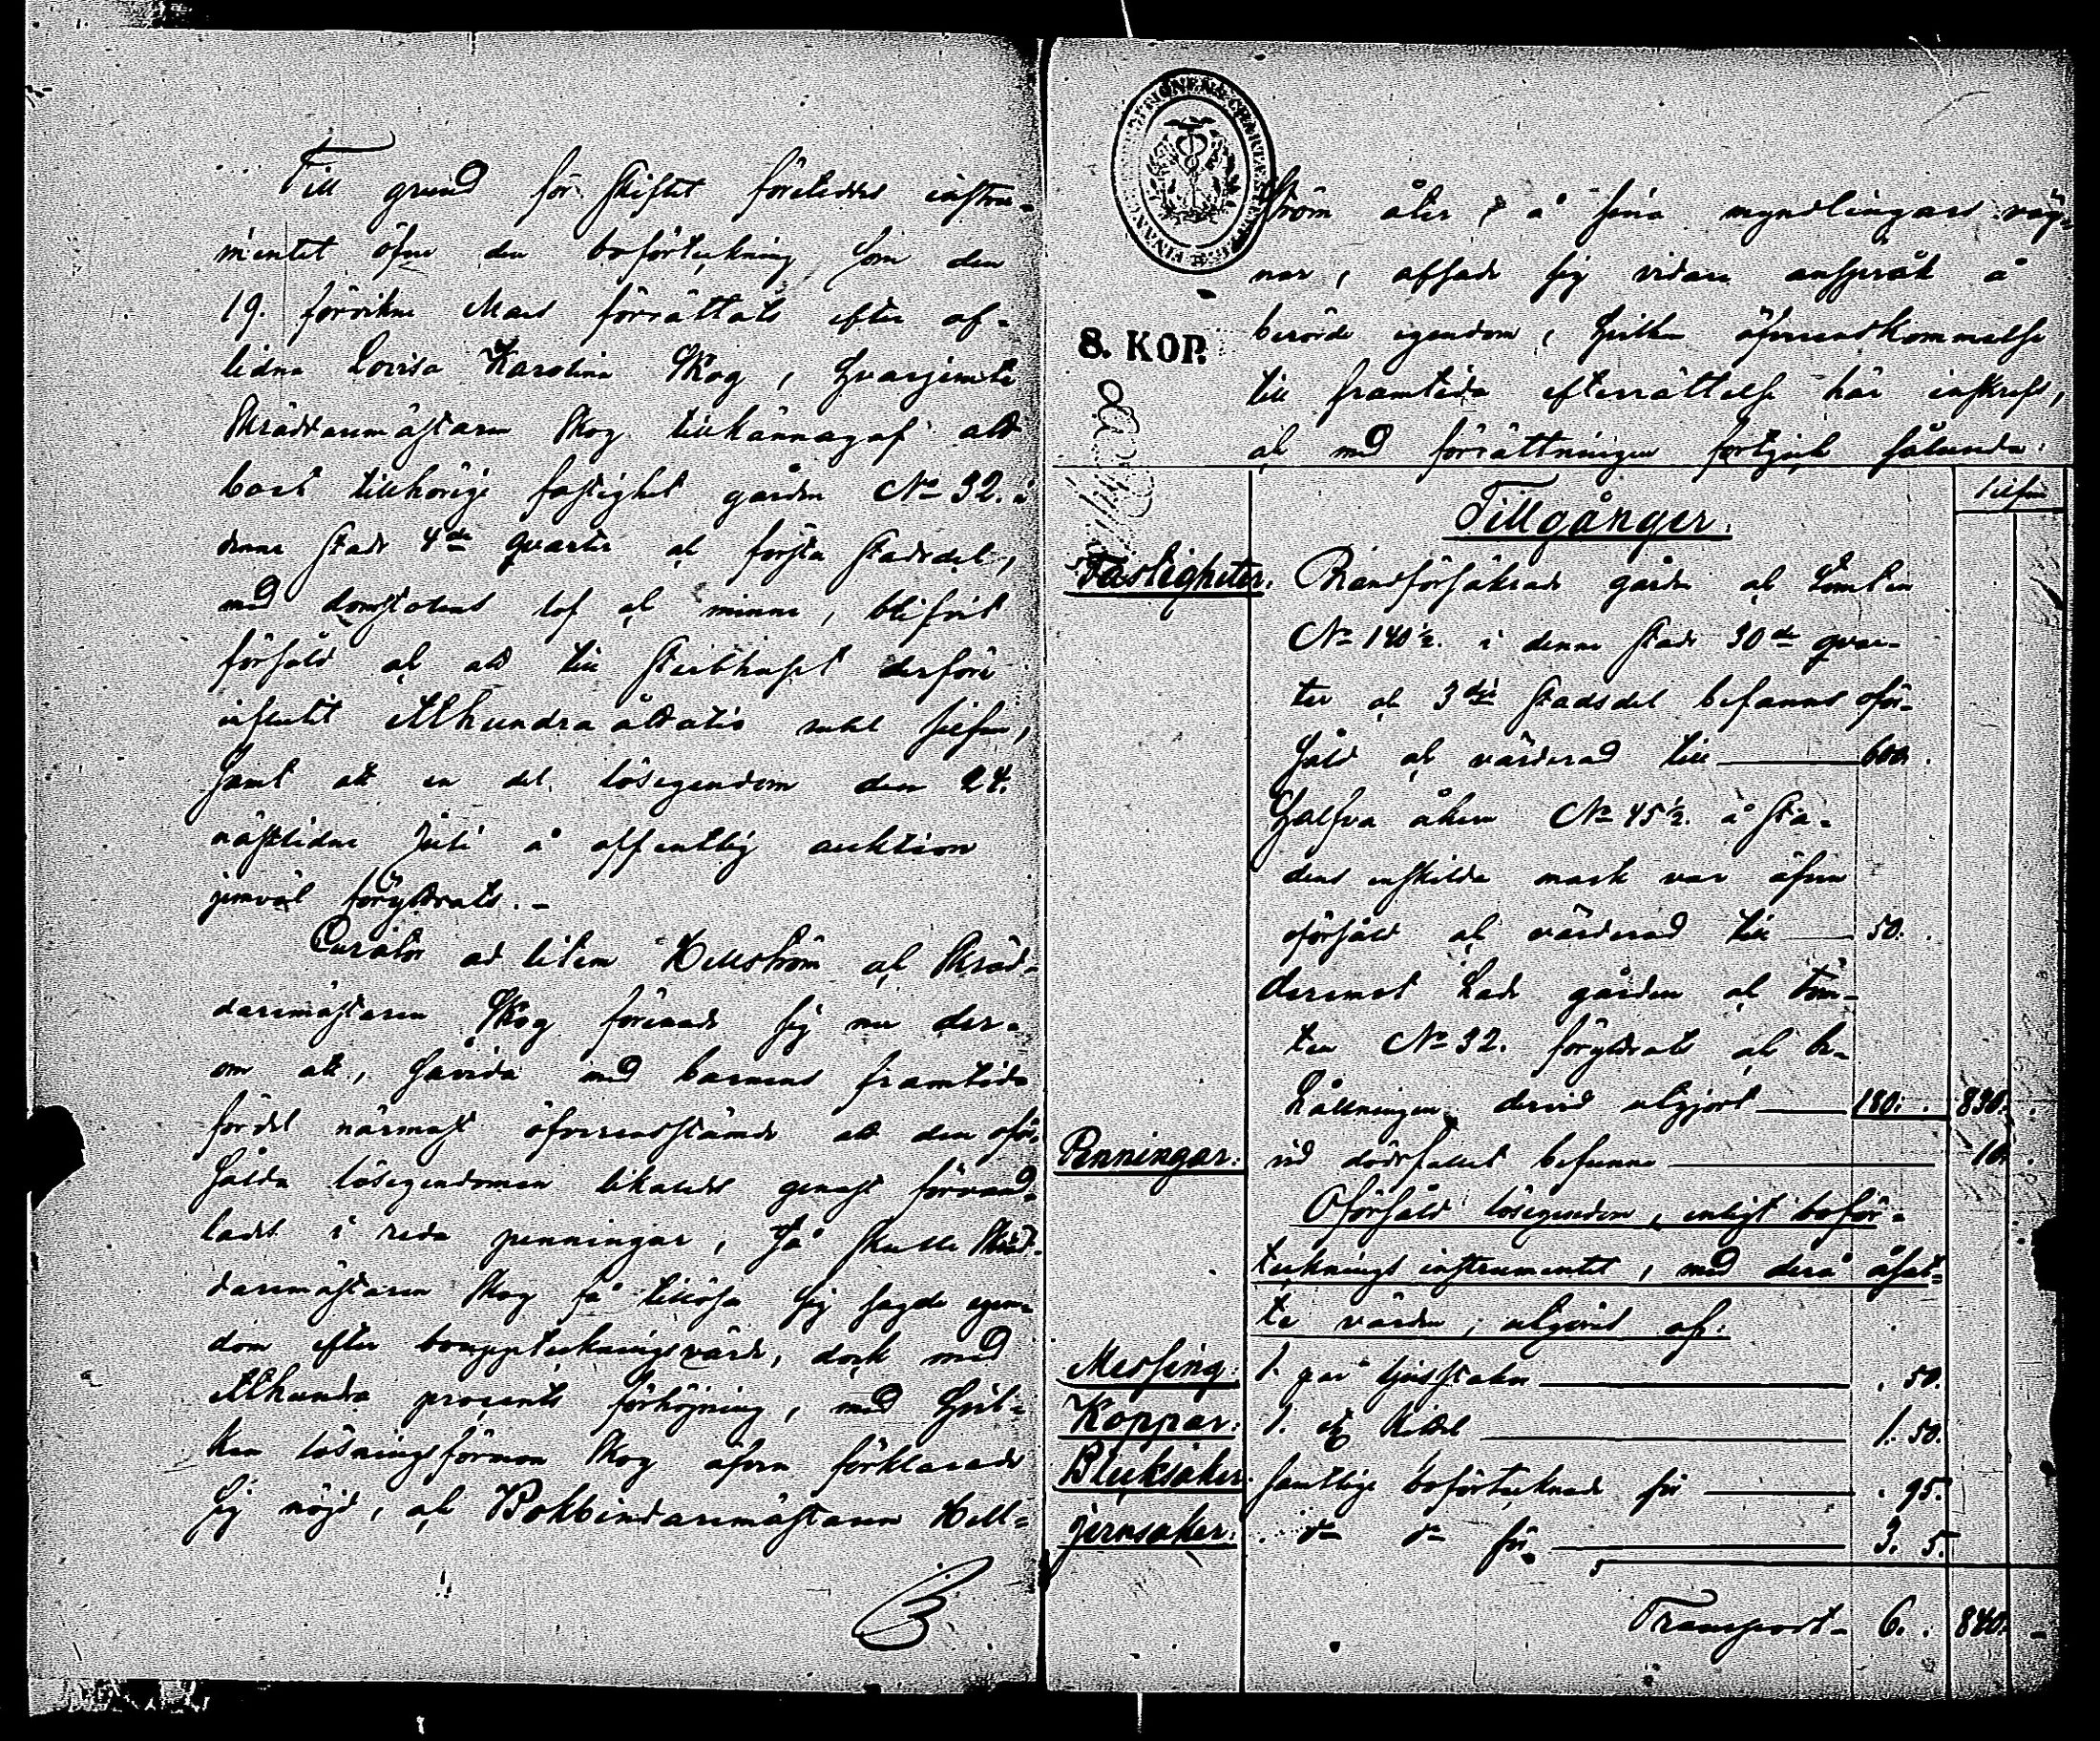 Till grund för skiftet företeddes instru-
mentet öfver den boförteckning som den
19. förvikne Mars förrättats efter af-
lidna Lovisa Karolina Skog, hvarjemte
Skräddaremästaren Skog tillkännagaf att
boets tillhörige fastighet gården No 32. i
denne stads 4de qvarter och första stadsdel,
med domstolens lof och minne, blifvit
försåld och att till sterbhuset derföre
influtit etthundraåttatio rubel silfver,
samt att en del lösegendom den 24.
nästlidne Juli å offentlig auktion
jemväl föryttrats. -
Curator ad litem Hellström och Skräd-
daremästaren Skog förenade sig nu der-
om att, såvida med barnens framtida
fördel närmast öfverensstämde att den oför-
sålda lösegendomen likaledes genast förvand-
lades i reda penningar, så skulle Skräd-
daremästaren Skog få tillösa sig sagde egen-
dom efter bouppteckningsvärde, dock med
etthundra procents förhöjning, med hvil-
ken lösningsförmon Skog äfven förklarade
sig nöjd, och Bokbindaremästaren Hell-
8. KOP.
ström åter, å sina myndlingars väg-
nar, afsade sig vidare anspråk å
berörde egendom, hvilken öfverenskommelse
till framtida efterrättelse här inskrefs,
och med förrättningen fortgick sålunda:
Silfver
Tillgångar.
Fastigheter. Brandförsäkrade gården och tomten
No 140½. i denne stads 30de qvar-
ter och 3dje stadsdel befanns oför-
såld och värderad till 600.
Halfva åkern No 45½. å sta-
dens enskilda mark var äfven
oförsåld och värderad till 50.
deremot hade gården och tom-
ten No 32. föryttrats och be-
hållningen dervid utgjort 180. 830.
Penningar. vid dödsfallet befunne 10.
Oförsåld lösegendom, enligt boför-
tecknings instrumentet, med derå åsat-
te värden, utgjord af:
Messing. 1. par ljusstakar . 50.
Koppar. 1. kittel 1. 50.
Blecksaker. samtlige boförtecknade för . 95.
Jernsaker. do do för 3. 5.
Transport- 6. . 840. -